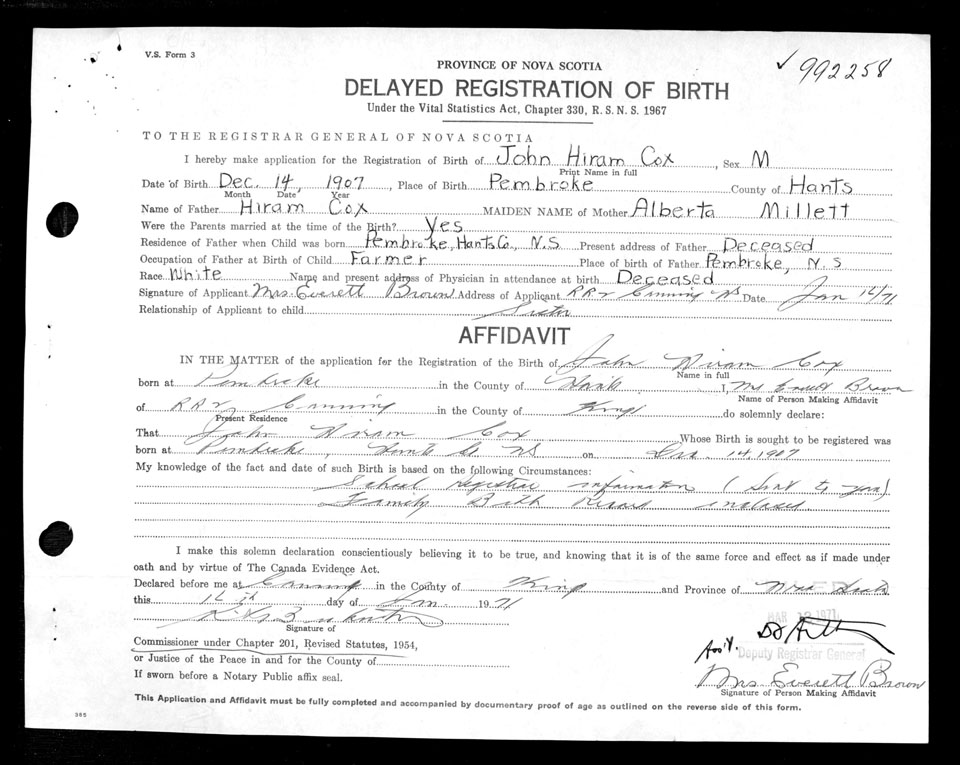 V.S. Form 3
✓992258
PROVINCE OF NOVA SCOTIA
DELAYED REGISTRATION OF BIRTH
Under the Vital Statistics Act, Chapter 330, R. S. N. S. 1967
TO THE REGISTRAR GENERAL OF NOVA SCOTIA
I hereby make application for the Registration of Birth of John Hiram Cox, Sex M
Print Name in full
Date of Birth Dec. 14, 1907, Place of Birth Pembroke County of Hants
Month Date Year
Name of Father Hiram Cox MAIDEN NAME of Mother Alberta Millett
Were the Parents married at the time of the Birth? Yes
Residence of Father when Child was born Pembroke, Hants Co., N.S. Present address of Father Deceased
Occupation of Father at Birth of Child Farmer Place of birth of Father Pembroke, N.S
Race White Name and present address of Physician in attendance at birth Deceased
Signature of Applicant Mrs. Everett Brown Address of Applicant RR2 Canning NS Date Jan 16/71
Relationship of Applicant to child Sister
AFFIDAVIT
IN THE MATTER of the application for the Registration of the Birth of John Hiram Cox
Name in full
born at Pembroke in the County of Hants I, Mrs Everett Brown
Name of Person Making Affidavit
of RR2 Canning in the County of Kings do solemnly declare:
Present Residence
That John Hiram Cox Whose Birth is sought to be registered was
born at Pembroke, Hants Co NS on Dec. 14 1907
My knowledge of the fact and date of such Birth is based on the following Circumstances:
School register information (sent to you)
Family Birth Record enclosed.
I make this solemn declaration conscientiously believing it to be true, and knowing that it is of the same force and effect as if made under
oath and by virtue of The Canada Evidence Act.
Declared before me at Canning in the County of King and Province of Nova Scotia
this 16th day of Jan 1971
MAR 12 1971
Signature of
Commissioner under Chapter 201, Revised Statutes, 1954,
Deputy Registrar General
or Justice of the Peace in and for the County of
Mrs Everett Brown
If sworn before a Notary Public affix seal.
Signature of Person Making Affidavit
This Application and Affidavit must be fully completed and accompanied by documentary proof of age as outlined on the reverse side of this form.
385